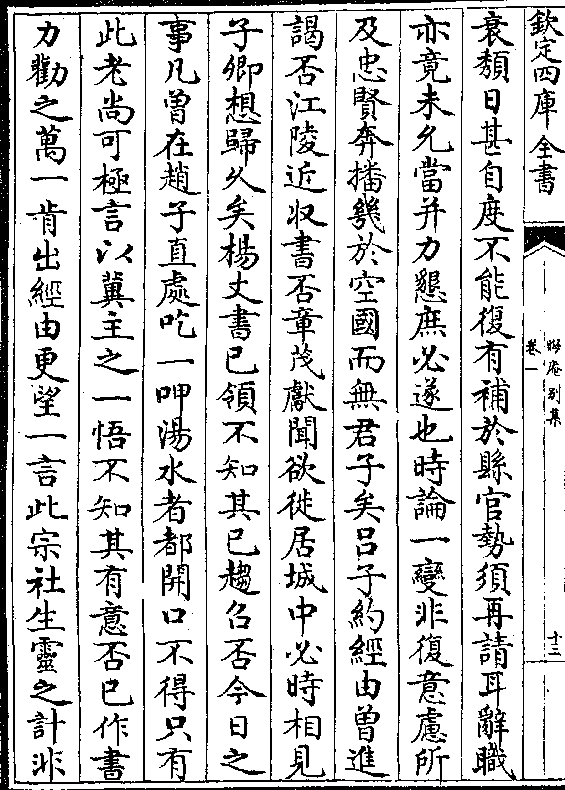 欽定四庫全書
晦庵别集
卷一
十三
衰頽日甚自度不能復有補於縣官勢須再請耳辭職
亦竟未允當并力懇庶必遂也時論一變非復意慮所
及忠賢奔播幾於空國而無君子矣吕子約經由曾進
謁否江陵近収書否章茂獻聞欲徙居城中必時相見
子卿想歸乆矣楊丈書已領不知其已趨召否今日之
事凡曾在趙子直處吃一呷湯水者都開口不得只有
此老尚可極言以冀主之一悟不知其有意否已作書
力勸之萬一肯出經由更望一言此宗社生靈之計非